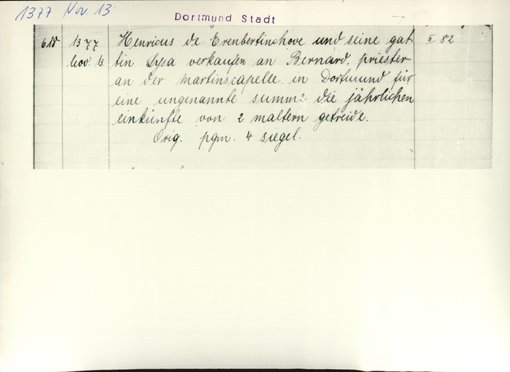 1377 Nov. 13
Dortmund Stadt
618 1377 Henricus de Erenbertinchove und seine gat- II 82
Nov. 13 tin Lysa verkaufen an Bernard, priester
an der martinscapelle in Dortmund für
eine ungenannte summe die jährlichen
einkünfte von 2 maltern getreide.
Orig. pgm. 4 siegel.